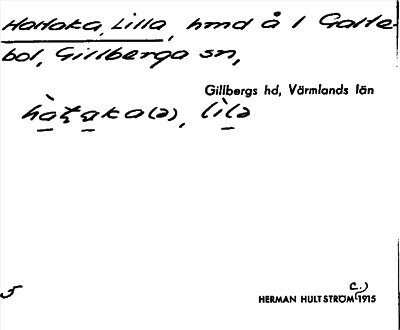 Hattaka, Lilla, hmd å 1 Galte-
bol, Gillberga sn,
Gillbergs hd, Värmlands län
hàt̪a̠ka(ə), lìl̠ə
5
HERMAN HULTSTRÖM (c.) 1915